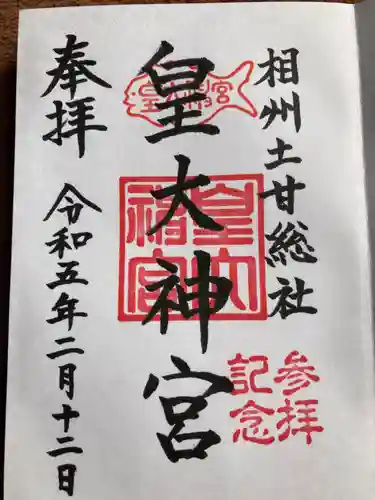 相州土甘総社
皇大神宮
皇大神宮
皇大神宮
参拝
記念
奉拝
令和五年二月十二日